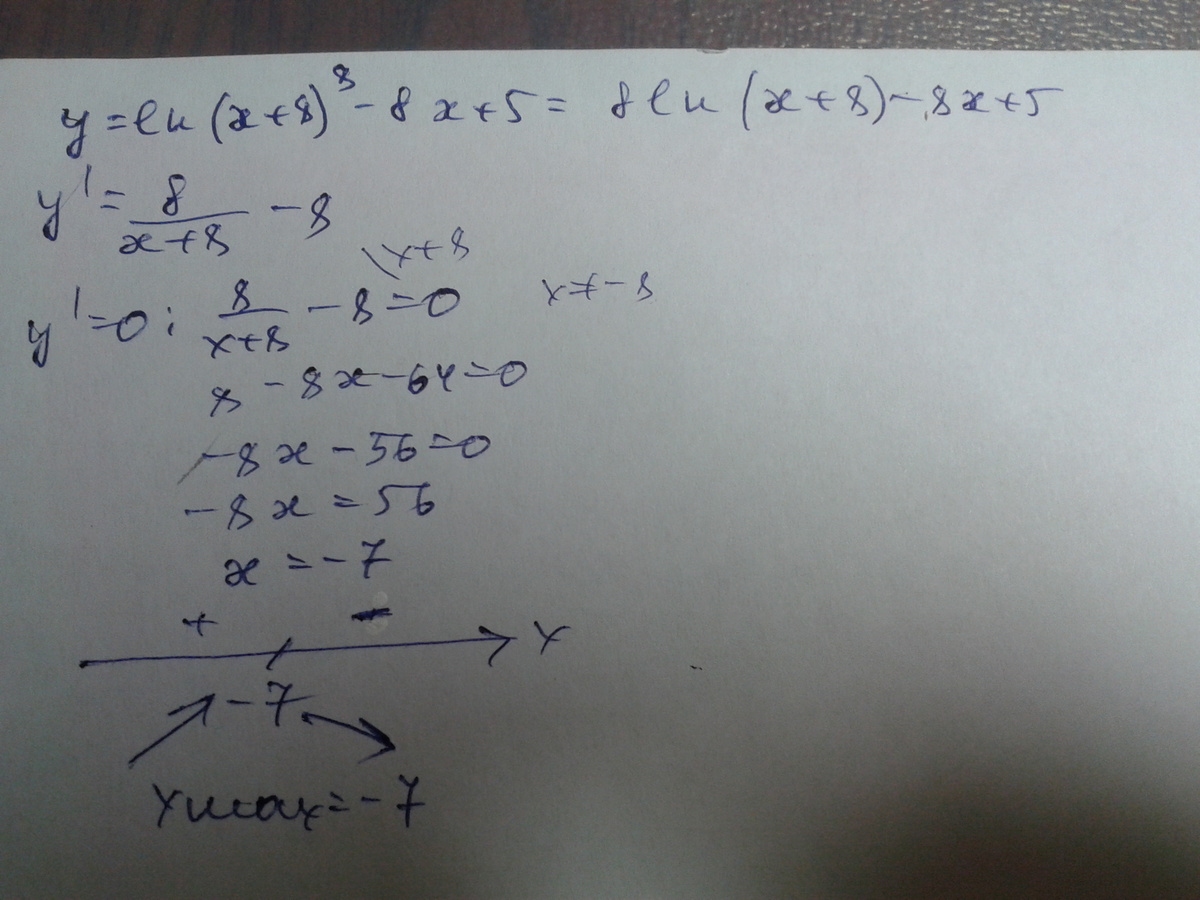 y = ln (x+8)^8 - 8x+5 = 8 ln (x+8) - 8x+5
y' = 8/(x+8) - 8
\x+8
y'=0: 8/(x+8) - 8 = 0 x≠-8
8 - 8x - 64 = 0
-8x - 56 = 0
-8x = 56
x = -7
+ -
x
-7
xmax = -7